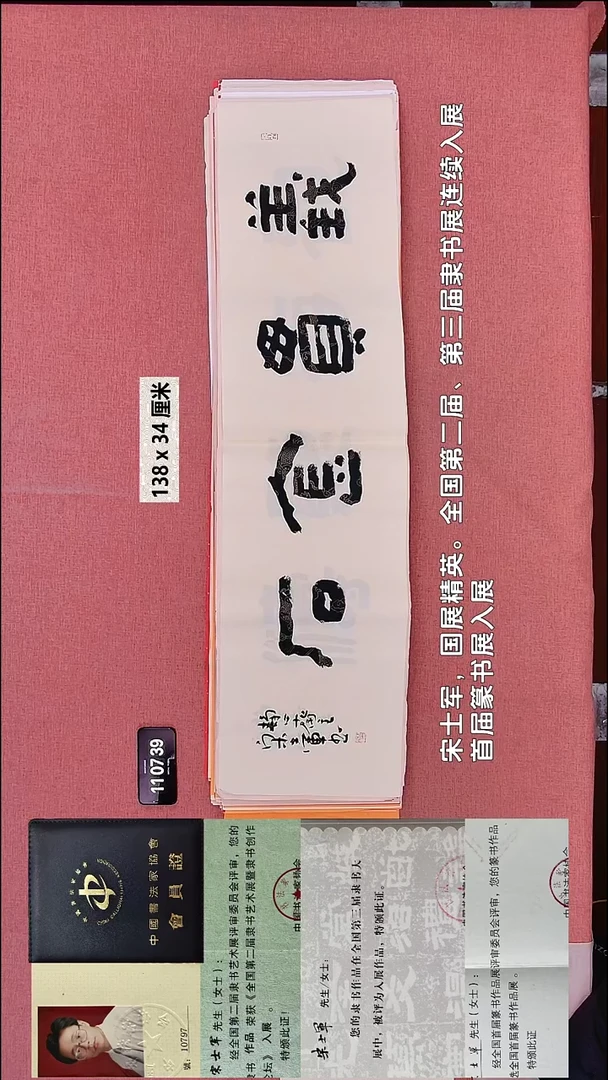 義貫金石
宋士軍书
138 x 34 厘米
110739
宋士军，国展精英。全国第二届、第三届隶书展连续入展
首届篆书展入展
中國書法家協會
會員證
號：10797
宋士军 先生（女士）：
经全国第二届隶书艺术展评审委员会评审，您的
隶书 作品 荣获《全国第二届隶书艺术展暨隶书创作
论坛》 入展 。
特颁此证！
宋士军 先生/女士：
您的隶书作品在全国第三届隶书大
展中，被评为入展作品，特颁此证。
士军 先生（女士）：
经全国首届篆书作品展评审委员会评审，您的篆书作品
选全国首届篆书作品展。
特颁此证